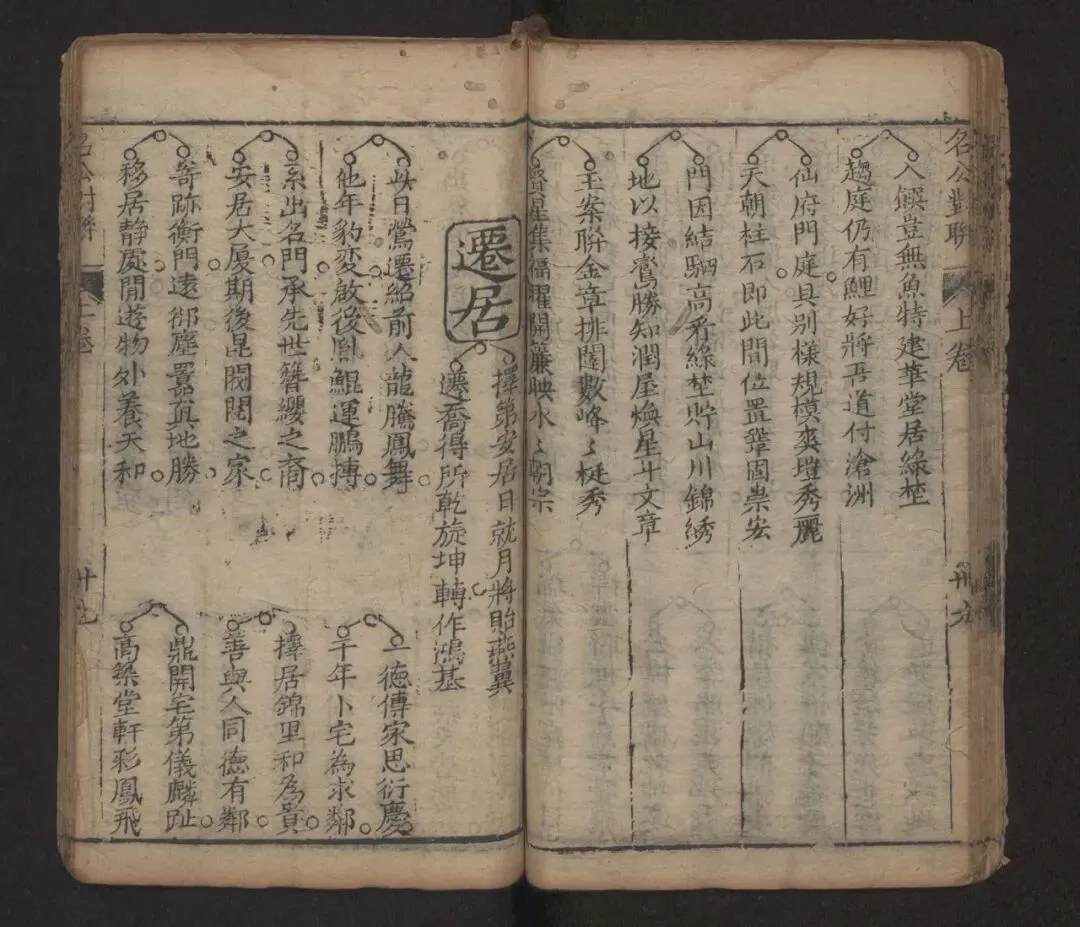 名公對聯
上卷
卅九
人饌豈無魚特建華堂居綠埜
趨庭仍有鯉好將吾道付滄洲
仙府門庭具别樣規模爽塏秀麗
天朝柱石即此間位置鞏固崇安
門因結駟高看綠埜貯山川錦綉
地以接鶯勝知潤屋煥星斗文章
玉案聯金章排闥數峰〻挺秀
星集福曜開簾映水〻朝宗
遷居
擇第安居日就月將貽燕翼
遷喬得所乾旋坤轉作鴻基
此日鶯遷紹前人龍騰鳳舞
他年豹变啟後胤鯤運鵬摶
系出名門承先世簪纓之裔
安居大厦期後昆閥閱之家
寄跡衡門遠却塵囂真地勝
移居静處閒遊物外養天和
德傳家思衍慶
千年卜宅為求鄰
擇居錦里和為貴
善與人同德有鄰
鼎開宅第儀麟趾
高築堂軒彩鳳飛
名公對聯
上卷